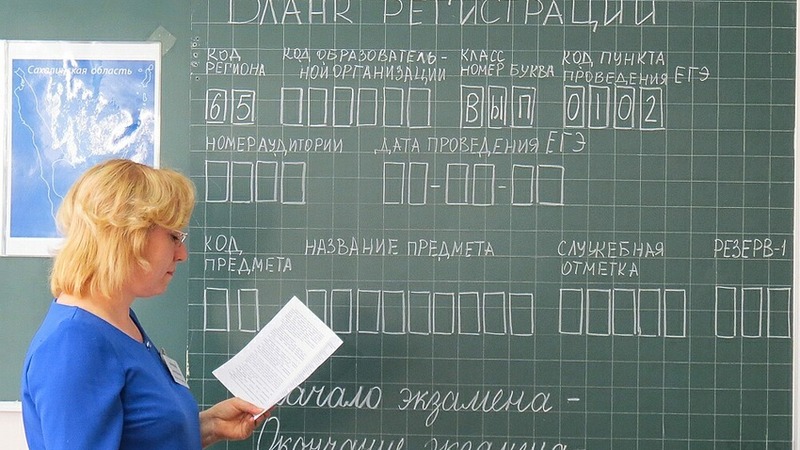 БЛАНК РЕГИСТРАЦИИ
Сахалинская область
КОД РЕГИОНА
КОД ОБРАЗОВАТЕЛЬ-
НОЙ ОРГАНИЗАЦИИ
КЛАСС
НОМЕР БУКВА
КОД ПУНКТА
ПРОВЕДЕНИЯ ЕГЭ
65
ВЫП
0102
НОМЕР АУДИТОРИИ
ДАТА ПРОВЕДЕНИЯ ЕГЭ
- -
КОД
ПРЕДМЕТА
НАЗВАНИЕ ПРЕДМЕТА
СЛУЖЕБНАЯ
ОТМЕТКА
РЕЗЕРВ-1
Начало экзамена -
Окончание экзамена -